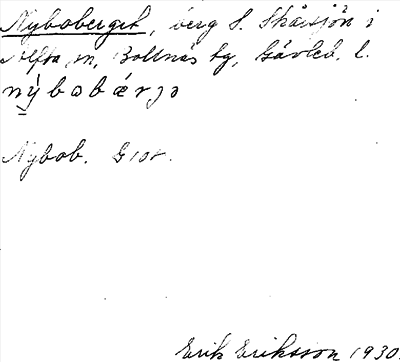 Nyboberget, berg S. Skåesjön i
Alfta sn, Bollnäs tg, Gävleb. l.
nỳbobǽrjə
Nybob. G107.
Erik Eriksson 1930.